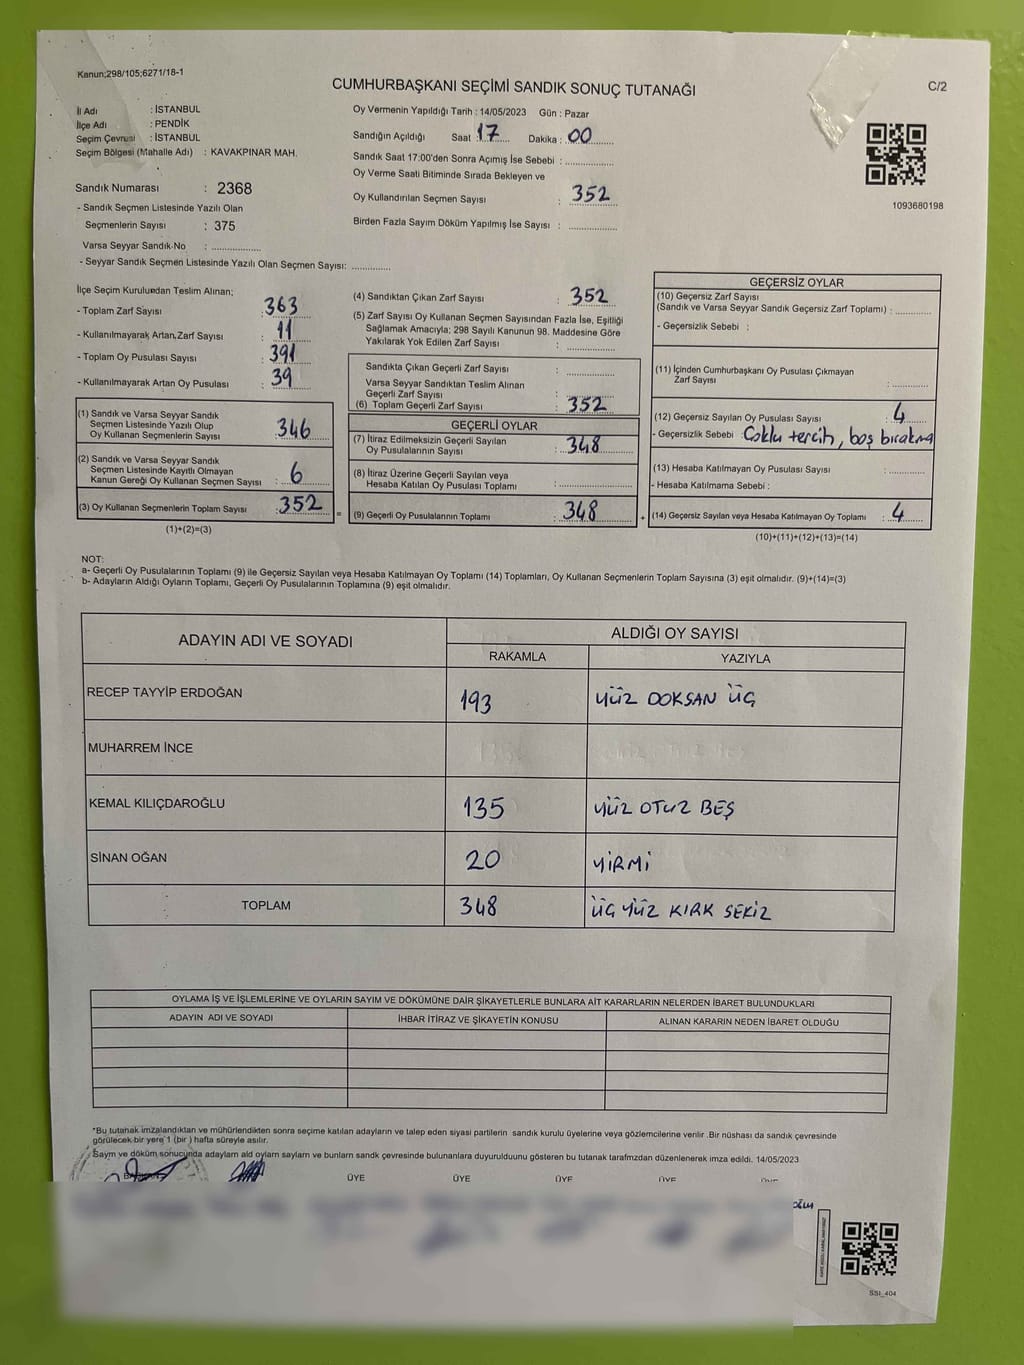 Kanun;298/105;6271/18-1
CUMHURBAŞKANI SEÇİMİ SANDIK SONUÇ TUTANAĞI
C/2
İl Adı : İSTANBUL
İlçe Adı : PENDİK
Seçim Çevrusi : İSTANBUL
Seçim Bölgesi (Mahalle Adı) : KAVAKPINAR MAH.
Oy Vermenin Yapıldığı Tarih : 14/05/2023 Gün : Pazar
Sandığın Açıldığı Saat : 17 Dakika : 00
Sandık Saat 17:00'den Sonra Açımış İse Sebebi :
Oy Verme Saati Bitiminde Sırada Bekleyen ve
Oy Kullandırılan Seçmen Sayısı : 352
Birden Fazla Sayım Döküm Yapılmış İse Sayısı :
1093680198
Sandık Numarası : 2368
- Sandık Seçmen Listesinde Yazılı Olan
Seçmenlerin Sayısı : 375
Varsa Seyyar Sandık No :
- Seyyar Sandık Seçmen Listesinde Yazılı Olan Seçmen Sayısı:
İlçe Seçim Kurulundan Teslim Alınan;
- Toplam Zarf Sayısı : 363
- Kullanılmayarak Artan Zarf Sayısı : 11
- Toplam Oy Pusulası Sayısı : 391
- Kullanılmayarak Artan Oy Pusulası : 39
(1) Sandık ve Varsa Seyyar Sandık
Seçmen Listesinde Yazılı Olup
Oy Kullanan Seçmenlerin Sayısı : 346
(2) Sandık ve Varsa Seyyar Sandık
Seçmen Listesinde Kayıtlı Olmayan
Kanun Gereği Oy Kullanan Seçmen Sayısı : 6
(3) Oy Kullanan Seçmenlerin Toplam Sayısı : 352
(1)+(2)=(3)
(4) Sandıktan Çıkan Zarf Sayısı : 352
(5) Zarf Sayısı Oy Kullanan Seçmen Sayısından Fazla İse, Eşitliği
Sağlamak Amacıyla; 298 Sayılı Kanunun 98. Maddesine Göre
Yakılarak Yok Edilen Zarf Sayısı :
Sandıkta Çıkan Geçerli Zarf Sayısı :
Varsa Seyyar Sandıktan Teslim Alınan
Geçerli Zarf Sayısı :
(6) Toplam Geçerli Zarf Sayısı : 352
GEÇERLİ OYLAR
(7) İtiraz Edilmeksizin Geçerli Sayılan
Oy Pusulalarının Sayısı : 348
(8) İtiraz Üzerine Geçerli Sayılan veya
Hesaba Katılan Oy Pusulası Toplamı :
= (9) Geçerli Oy Pusulalarının Toplamı : 348
GEÇERSİZ OYLAR
(10) Geçersiz Zarf Sayısı
(Sandık ve Varsa Seyyar Sandık Geçersiz Zarf Toplamı) :
- Geçersizlik Sebebi :
(11) İçinden Cumhurbaşkanı Oy Pusulası Çıkmayan
Zarf Sayısı :
(12) Geçersiz Sayılan Oy Pusulası Sayısı : 4
- Geçersizlik Sebebi : Çoklu tercih, boş bırakma
(13) Hesaba Katılmayan Oy Pusulası Sayısı :
- Hesaba Katılmama Sebebi :
+ (14) Geçersiz Sayılan veya Hesaba Katılmayan Oy Toplamı : 4
(10)+(11)+(12)+(13)=(14)
NOT:
a- Geçerli Oy Pusulalarının Toplamı (9) ile Geçersiz Sayılan veya Hesaba Katılmayan Oy Toplamı (14) Toplamları, Oy Kullanan Seçmenlerin Toplam Sayısına (3) eşit olmalıdır. (9)+(14)=(3)
b- Adayların Aldığı Oyların Toplamı, Geçerli Oy Pusulalarının Toplamına (9) eşit olmalıdır.
ADAYIN ADI VE SOYADI ALDIĞI OY SAYISI
RAKAMLA YAZIYLA
RECEP TAYYİP ERDOĞAN 193 YÜZ DOKSAN ÜÇ
MUHARREM İNCE
KEMAL KILIÇDAROĞLU 135 YÜZ OTUZ BEŞ
SİNAN OĞAN 20 YİRMİ
TOPLAM 348 ÜÇ YÜZ KIRK SEKİZ
OYLAMA İŞ VE İŞLEMLERİNE VE OYLARIN SAYIM VE DÖKÜMÜNE DAİR ŞİKAYETLERLE BUNLARA AİT KARARLARIN NELERDEN İBARET BULUNDUKLARI
ADAYIN ADI VE SOYADI İHBAR İTİRAZ VE ŞİKAYETİN KONUSU ALINAN KARARIN NEDEN İBARET OLDUĞU
*Bu tutanak imzalandıktan ve mühürlendikten sonra seçime katılan adayların ve talep eden siyasi partilerin sandık kurulu üyelerine veya gözlemcilerine verilir .Bir nüshası da sandık çevresinde
görülecek bir yere 1 (bir ) hafta süreyle asılır.
Saym ve döküm sonucunda adaylam ald oylam saylam ve bunlam sandk çevresinde bulunanlara duyurulduunu gösteren bu tutanak tarafmzdan düzenlenerek imza edildi. 14/05/2023
ÜYE ÜYE ÜYE ÜYE
SSI_404